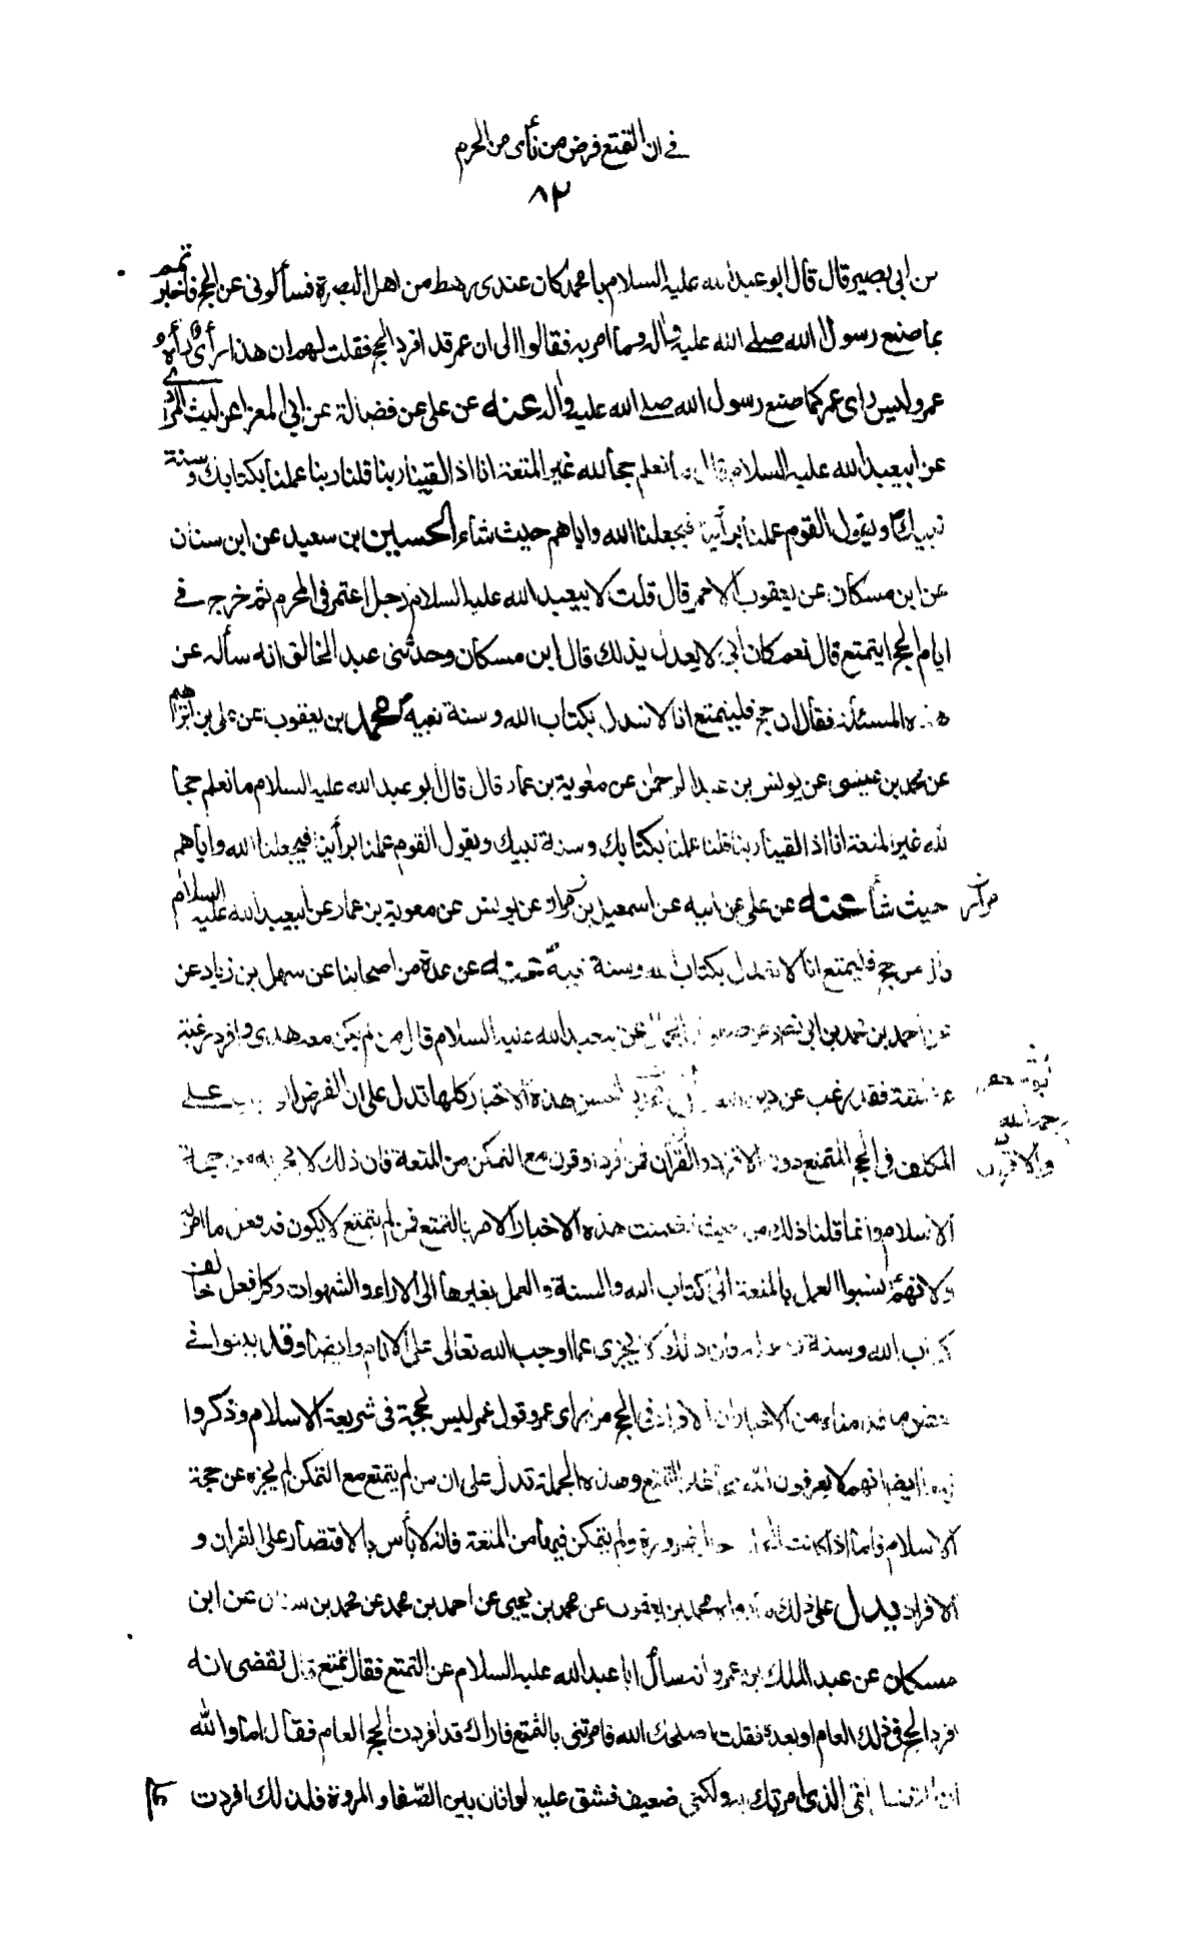 في ان التمتع فرض من نأى من الحرم
٨٢
عن ابى بصير قال قال ابو عبد الله عليه السلام يا محمد كان عندى رهط من اهل البصرة فسألونى عن الحج فاخبرتهم
بما صنع رسول الله صلى الله عليه واله وبما امر به فقالوا الى ان عمر قد افرد الحج فقلت لهم ان هذا رأى رأه
عمر وليس راى عمر كما صنع رسول الله صلى الله عليه واله عنه عن على عن فضالة عن ابى المعزا عن ليث المرادى
عن ابيعبد الله عليه السلام قال ما نعلم حجا لله غير المتعة انا اذا لقينا ربنا قلنا ربنا عملنا بكتابك وسنة
نبيك ويقول القوم عملنا برأينا فيجعلنا الله واياهم حيث شاء الحسين بن سعيد عن ابن سنان
عن ابن مسكان عن يعقوب الاحمر قال قلت لابيعبد الله عليه السلام رجل اعتمر فى المحرم ثم خرج فى
ايام الحج ايتمتع قال نعم كان ابى لا يعدل بذلك قال ابن مسكان وحدثنى عبد الخالق انه سأله عن
هذه المسئلة فقال ان حج فليتمتع انا لا نعدل بكتاب الله وسنة نبيه محمد بن يعقوب عن على بن ابراهيم
عن محمد بن عيسى عن يونس بن عبد الرحمن عن معوية بن عمار قال قال ابو عبد الله عليه السلام ما نعلم حجا
لله غير المتعة انا اذا لقينا ربنا قلنا عملنا بكتابك وسنة نبيك ويقول القوم عملنا برأينا فيجعلنا الله واياهم
حيث شأ عنه عن على عن ابيه عن اسمعيل بن مرار عن يونس عن معوية بن عمار عن ابيعبد الله عليه السلام
قال من حج فليتمتع انا لا نعدل بكتاب الله وسنة نبيه عنه عن عدة من اصحابنا عن سهل بن زياد عن
عن احمد بن محمد بن ابى نصر عن صفوان الجمال عن ابيعبد الله عليه السلام قال من لم يكن معه هدى وافرد رغبة
عن المتعة فقد رغب عن دين الله هذه الاخبار كلها تدل على ان الفرض على
المكلف فى الحج التمتع دون الافراد والقران فمن افرد او قرن مع التمكن من المتعة فان ذلك لا يجزيه عن حجة
الاسلام وانما قلنا ذلك من حيث تضمنت هذه الاخبار الامر بالتمتع فمن لم يتمتع لا يكون قد فعل ما امر به
ولانهم نسبوا العمل بالمتعة الى كتاب الله والسنة والعمل بغيرها الى الاراء والشهوات وكل فعل خالف
كتاب الله وسنة فان ذلك لا يجزى عما اوجب الله تعالى على الانام وايضا وقد بينوا فى
بعض ما قدمناه من الاخبار ان الافراد فى الحج من راى عمر وقول عمر ليس بحجة فى شريعة الاسلام وذكروا
ايضا انهم لا يعرفون لله حجا غير التمتع وهذه الجملة تدل على ان من لم يتمتع مع التمكن لم يجزه عن حجة
الاسلام فاما اذا كانت الحال حال ضرورة ولم يتمكن فيها من المتعة فانه لا بأس بالاقتصار على القران و
الافراد يدل على ذلك ما رواه محمد بن يعقوب عن محمد بن يحيى عن احمد بن محمد عن محمد بن سنان عن ابن
مسكان عن عبد الملك بن عمرو انه سأل ابا عبد الله عليه السلام عن التمتع فقال تمتع قال فقضى انه
افرد الحج فى ذلك العام او بعده فقلت اصلحك الله فامرتنى بالتمتع فاراك قد افردت الحج العام فقال اما والله
ان الفضل لفى الذى امرتك به ولكنى ضعيف فشق على طوافان بين الصفا والمروة فلذلك افردت
مرار
رحمه الله